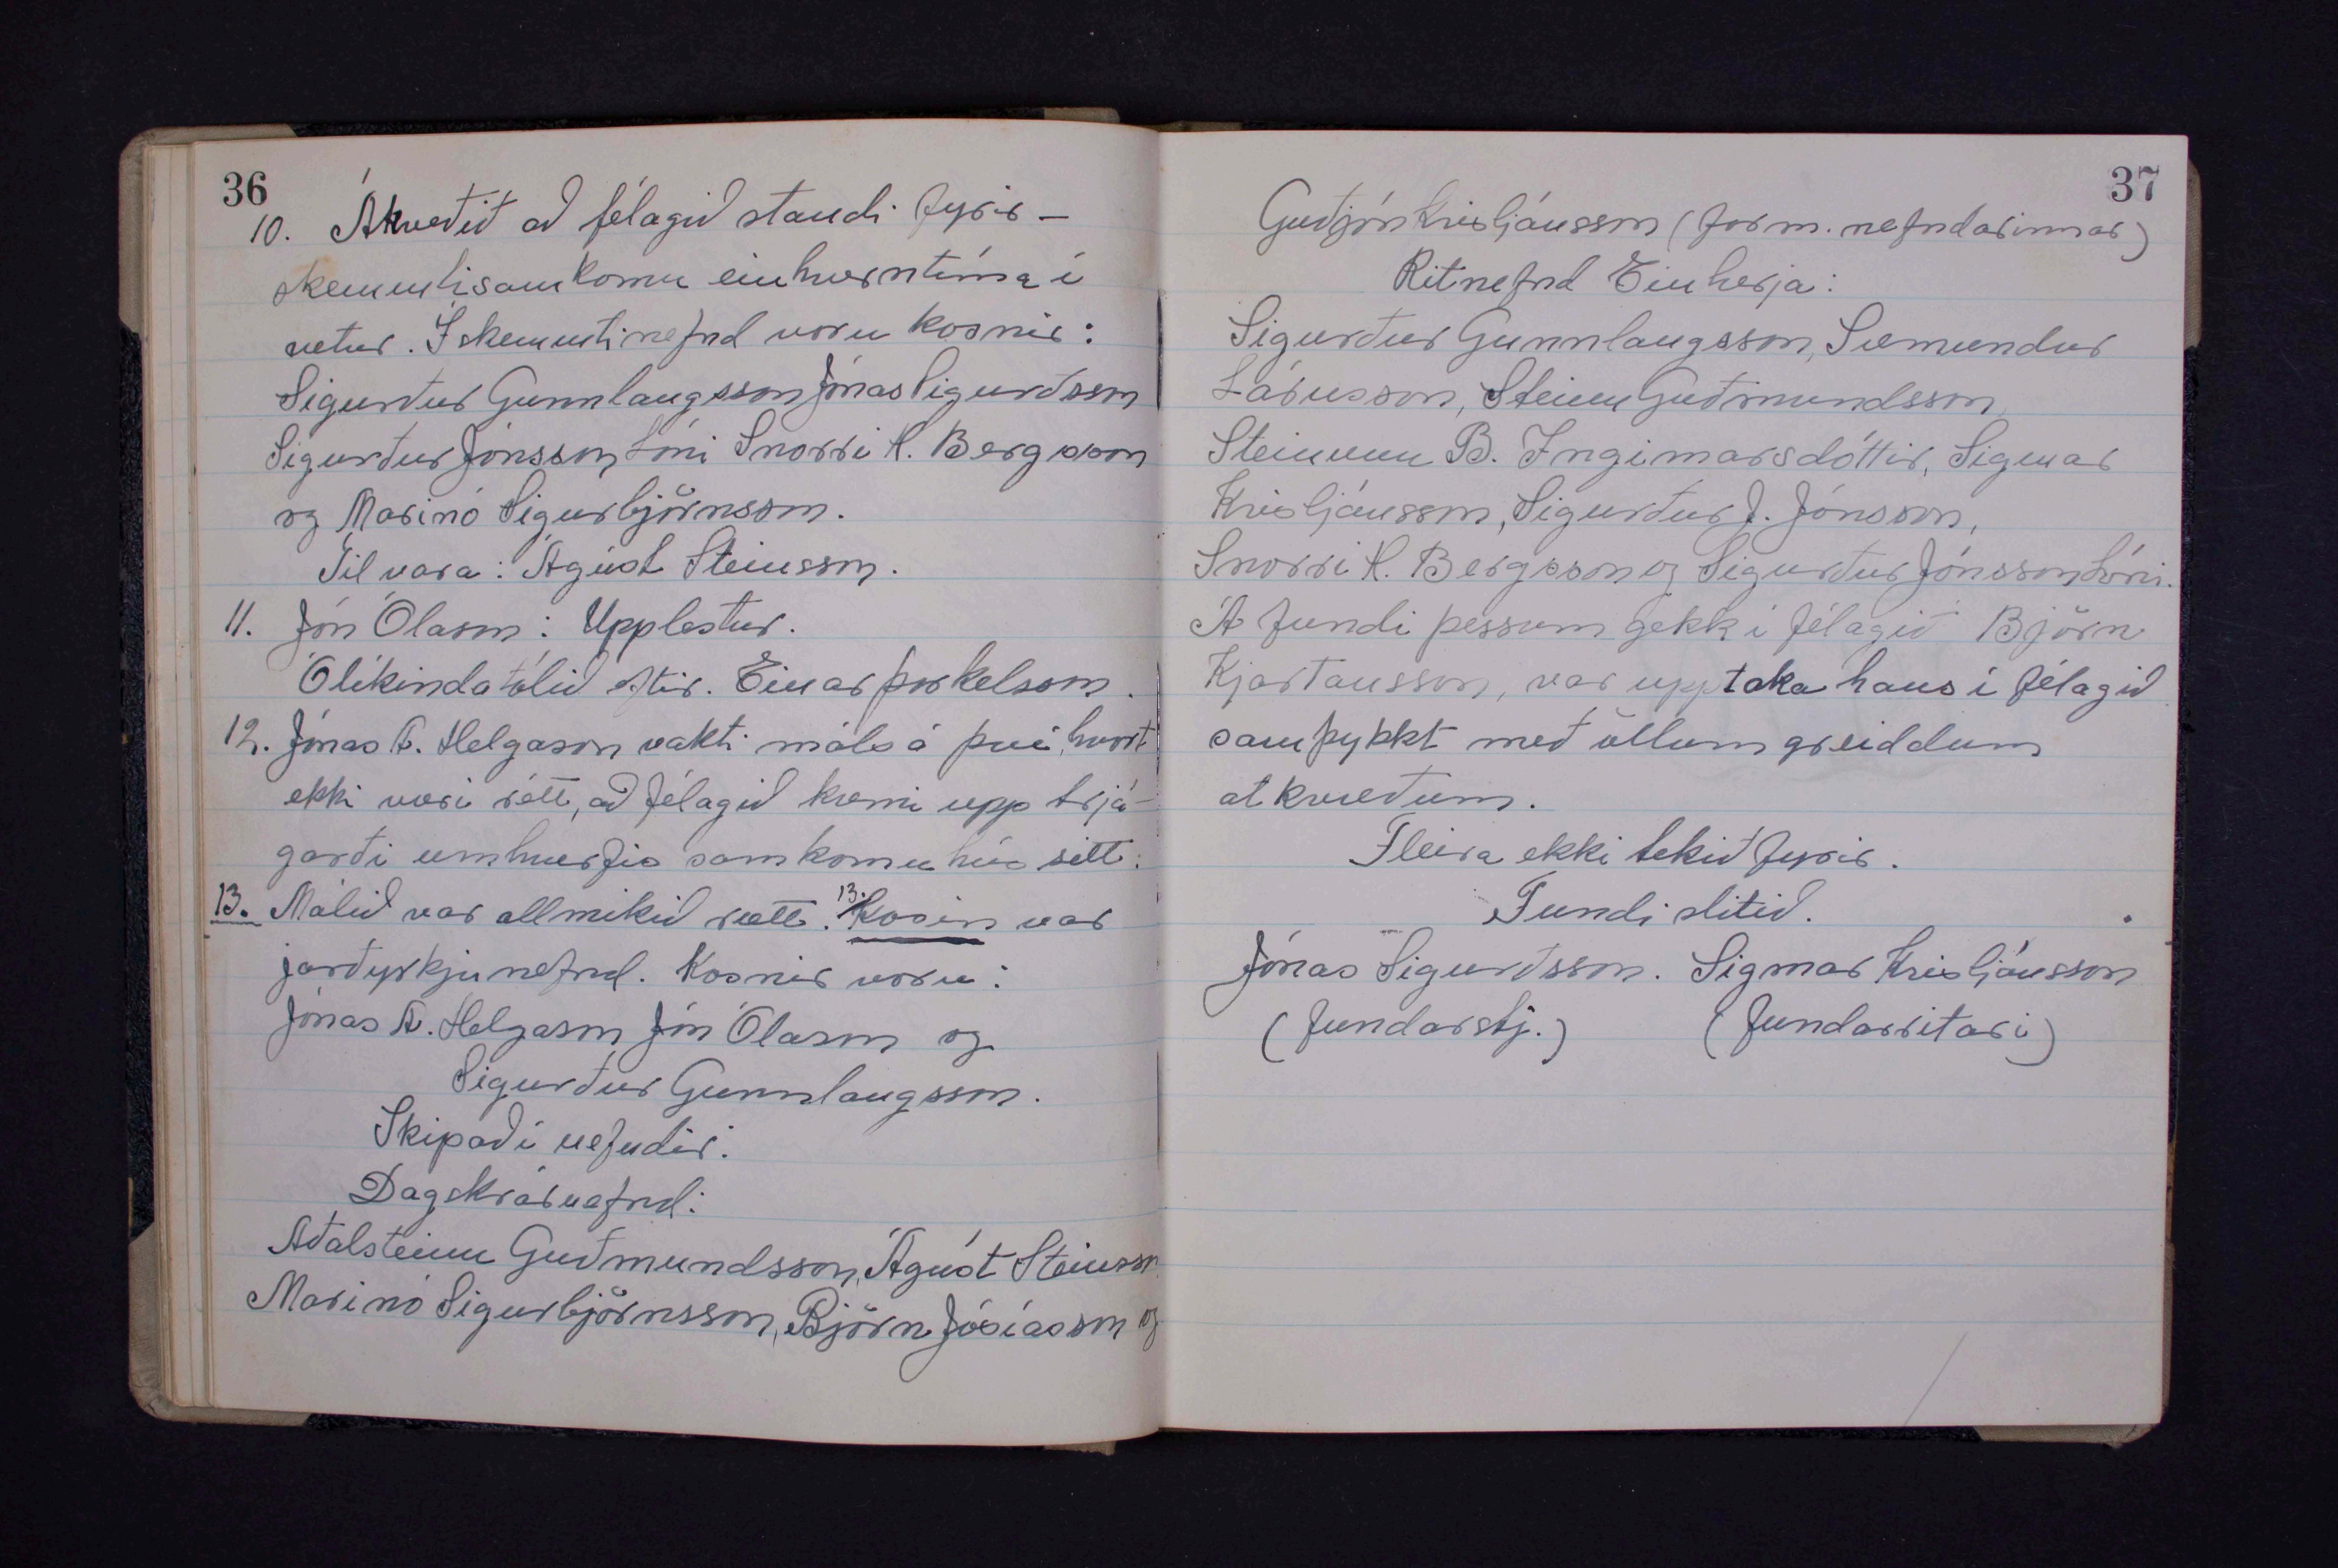 36
10. Ákveðið að félagið standi fyrir -
skemmtisamkomu einhverntíma í
vetur. Í skemmtinefnd voru kosnir:
Sigurður Gunnlaugsson Jónas Sigurðsson
Sigurður Jónsson Lóni Snorri H. Bergsson
og Marinó Sigurbjörnsson.
Til vara: Ágúst Steinsson.
11. Jón Ólason: Upplestur.
Ólíkindatólið eftir. Einar Þorkelsson.
12. Jónas A. Helgason vakti máls á því, hvort
ekki væri rétt, að félagið kæmi upp trjá-
garði umhverfis samkomuhús sitt.
13. Málið var allmikið rætt. 13. Kosin var
jarðyrkjunefnd. Kosnir voru:
Jónas A. Helgason Jón Ólason og
Sigurður Gunnlaugsson.
Skipað í nefndir:
Dagskrárnefnd:
Aðalsteinn Guðmundsson, Ágúst Steinsson
Marinó Sigurbjörnsson, Björn Jósíasson og
37
Guðjón Kristjánsson (form. nefndarinnar)
Ritnefnd Einherja:
Sigurður Gunnlaugsson, Sæmundur
Lárusson, Steinn Guðmundsson,
Steinunn B. Ingimarsdóttir, Sigmar
Kristjánsson, Sigurður J. Jónsson,
Snorri H. Bergsson og Sigurður Jónsson Lóni.
Á fundi þessum gekk í félagið Björn
Kjartansson, var upptaka hans í félagið
samþykkt með öllum greiddum
atkvæðum.
Fleira ekki tekið fyrir.
Fundi slitið.
Jónas Sigurðsson. Sigmar Kristjánsson
(fundarstj.) (fundarritari)